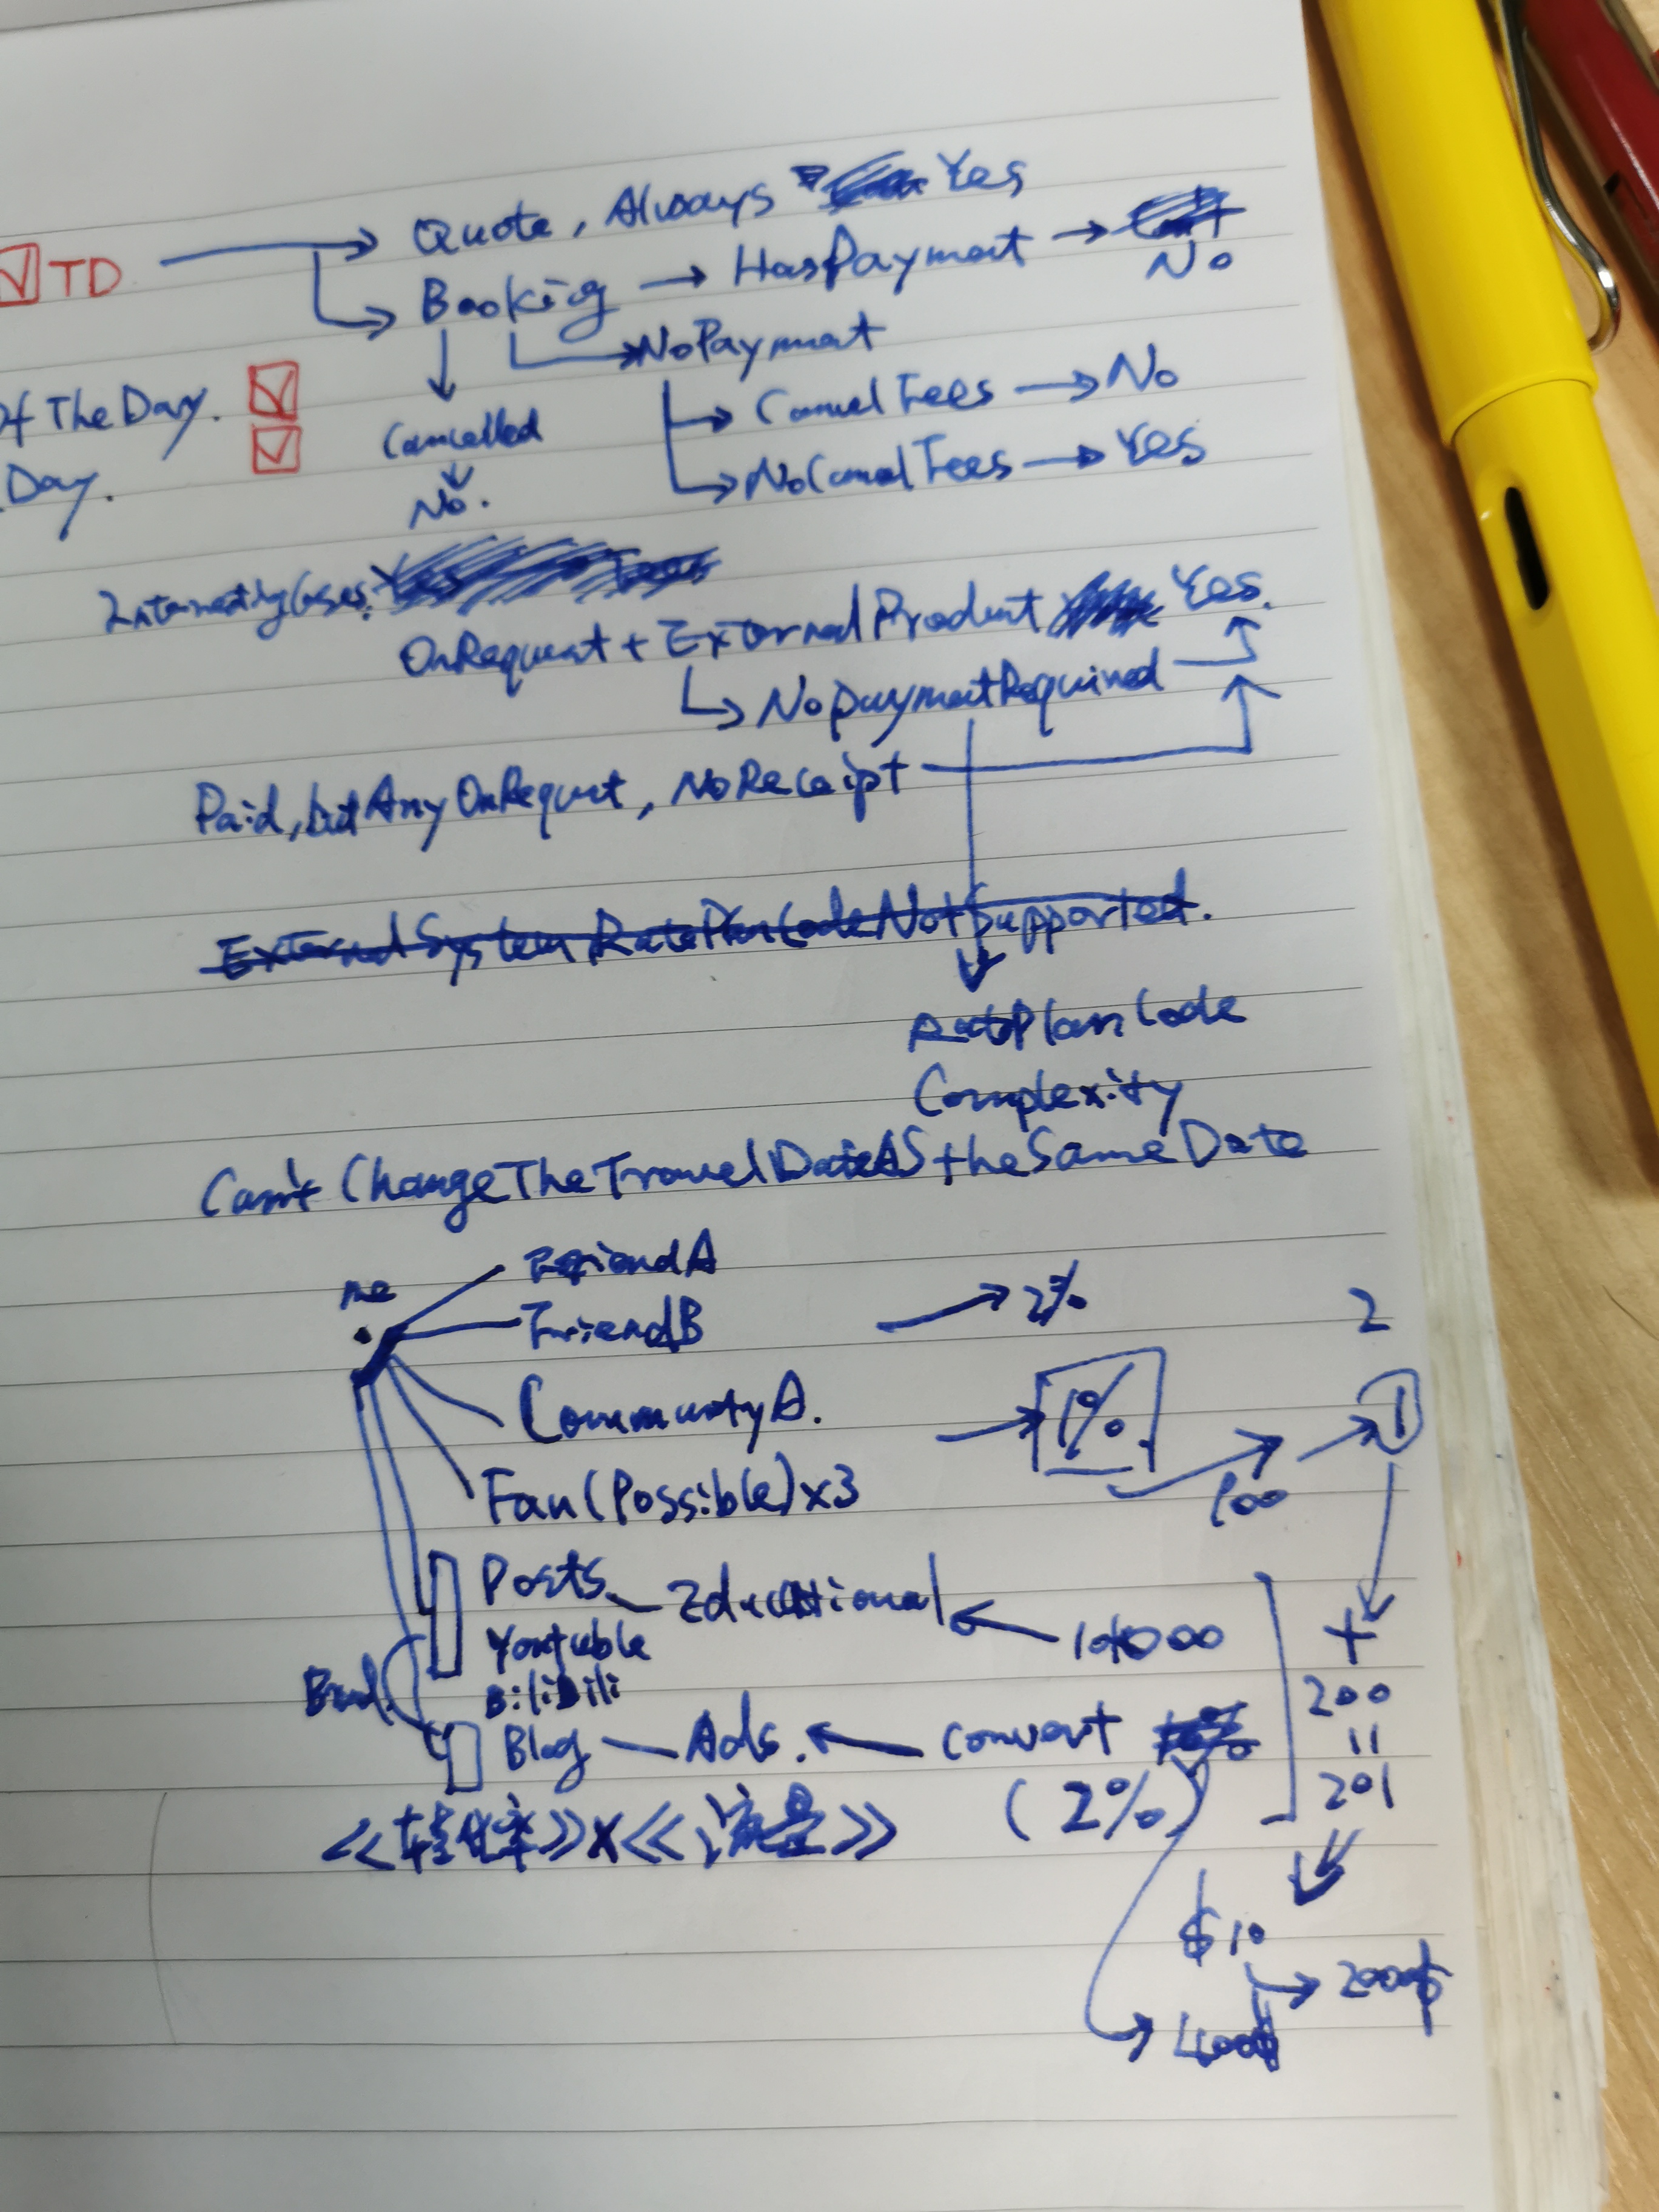 Quote, Always Yes
TD
Booking → HasPayment →
No
→ NoPayment
Of The Day.
CancelFees → No
Cancelled
Day.
NoCancelFees → Yes
No.
InterestingCases:
OnRequest + ExternalProduct Yes.
NoPaymentRequired
Paid, but Any OnRequest, NoReceipt
ExternalSystem RatePlanCodeNotSupported.
RatePlanCode
Complexity
Can't ChangeTheTravelDateAS theSameDate
me
FriendA
FriendB → 2% 2
CommunityA. → 1% → 1
100
Fan(Possible)x3
Posts — Educational ← 10000 +
Youtube
200
Bilibili
11
Blog — Ads. ← convert
201
(2%)
《转化率》x《流量》
$10
→ 2000$
→ 400$